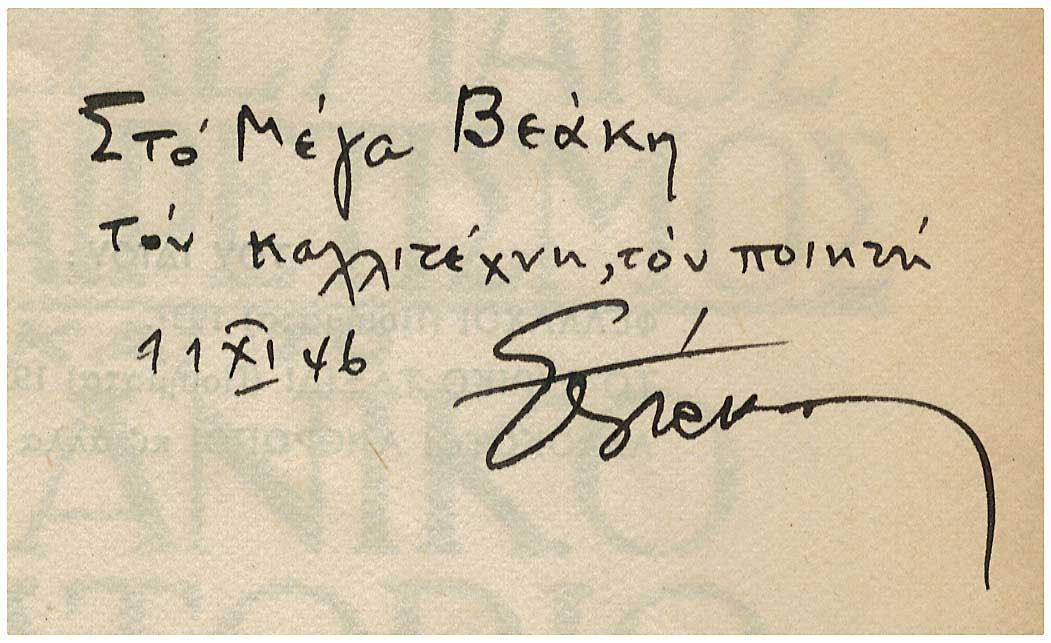 Στό Μέγα Βεάκη
τόν καλλιτέχνη, τόν ποιητή
11 XI 46